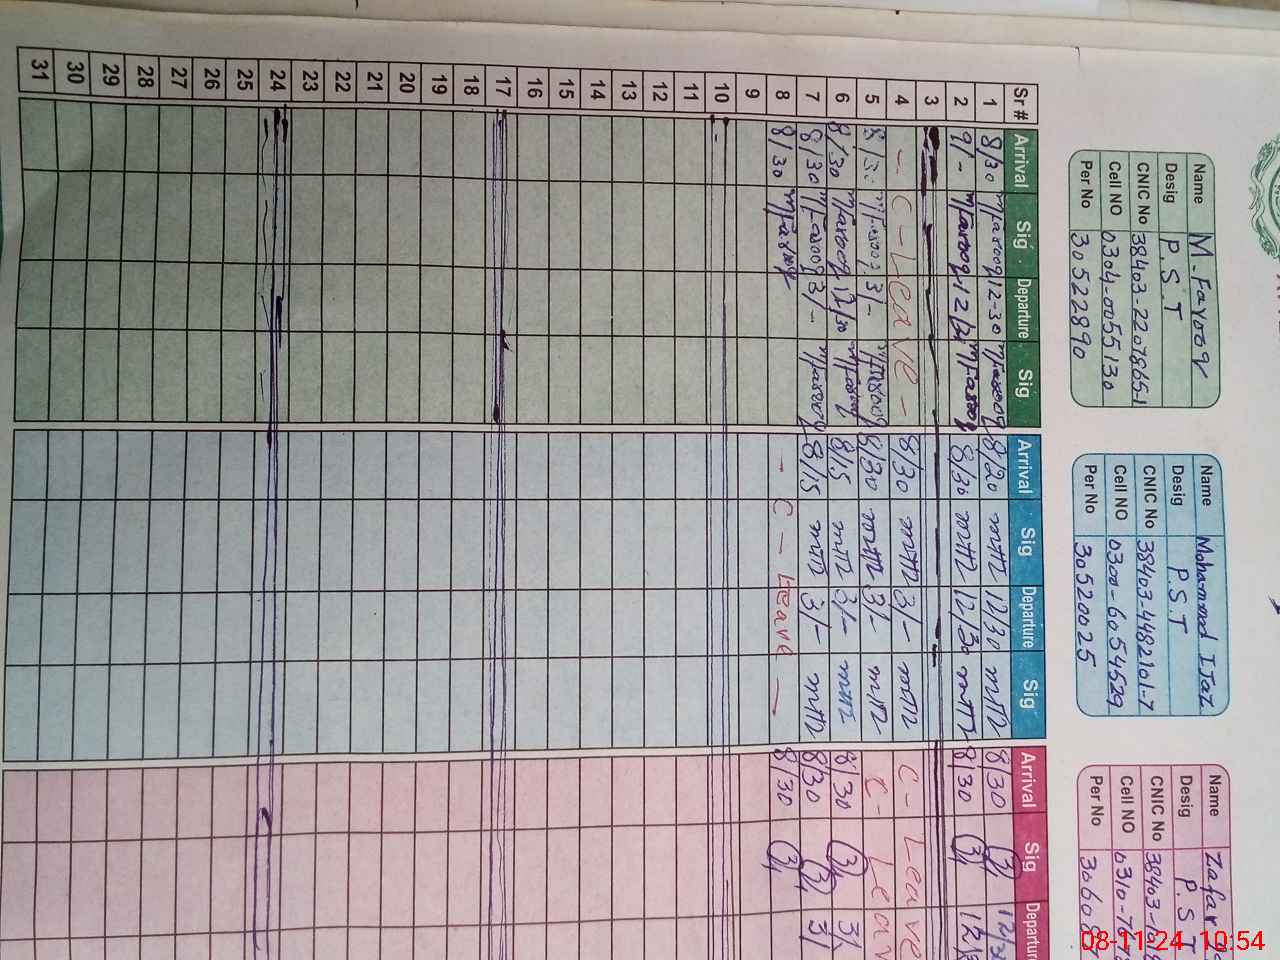 Name M. Farooq
Desig P.S.T
CNIC No 38403-2207865-1
Cell NO 0304-0055130
Per No 30522890
Name Mohammad Ijaz
Desig P.S.T
CNIC No 38403-4482101-7
Cell NO 0300-6054529
Per No 30520025
Name Zafar
Desig P.S.T
CNIC No 38403-
Cell NO 0310-
Per No
Sr # Arrival Sig Departure Sig Arrival Sig Departure Sig Arrival Sig Departure
1 8/30 M/Farooq 12-30 M/Farooq 8/20 12/30 8/30
2 9/- M/Farooq M/Farooq 8/30 12/30 8/30
3
4 - C - Leave - 8/30 3/- C - Leave
5 M/Farooq 3/- M/Farooq 8/30 3/- C - Leav
6 8/30 M/Farooq 12/30 M/Farooq 8/15 3/- 8/30
7 8/30 M/Farooq 3/- M/Farooq 8/15 3/- 8/30
8 8/30 M/Farooq - C - Leave - 8/30
9
10
11
12
13
14
15
16
17
18
19
20
21
22
23
24
25
26
27
28
29
30
31
08-11-24 10:54